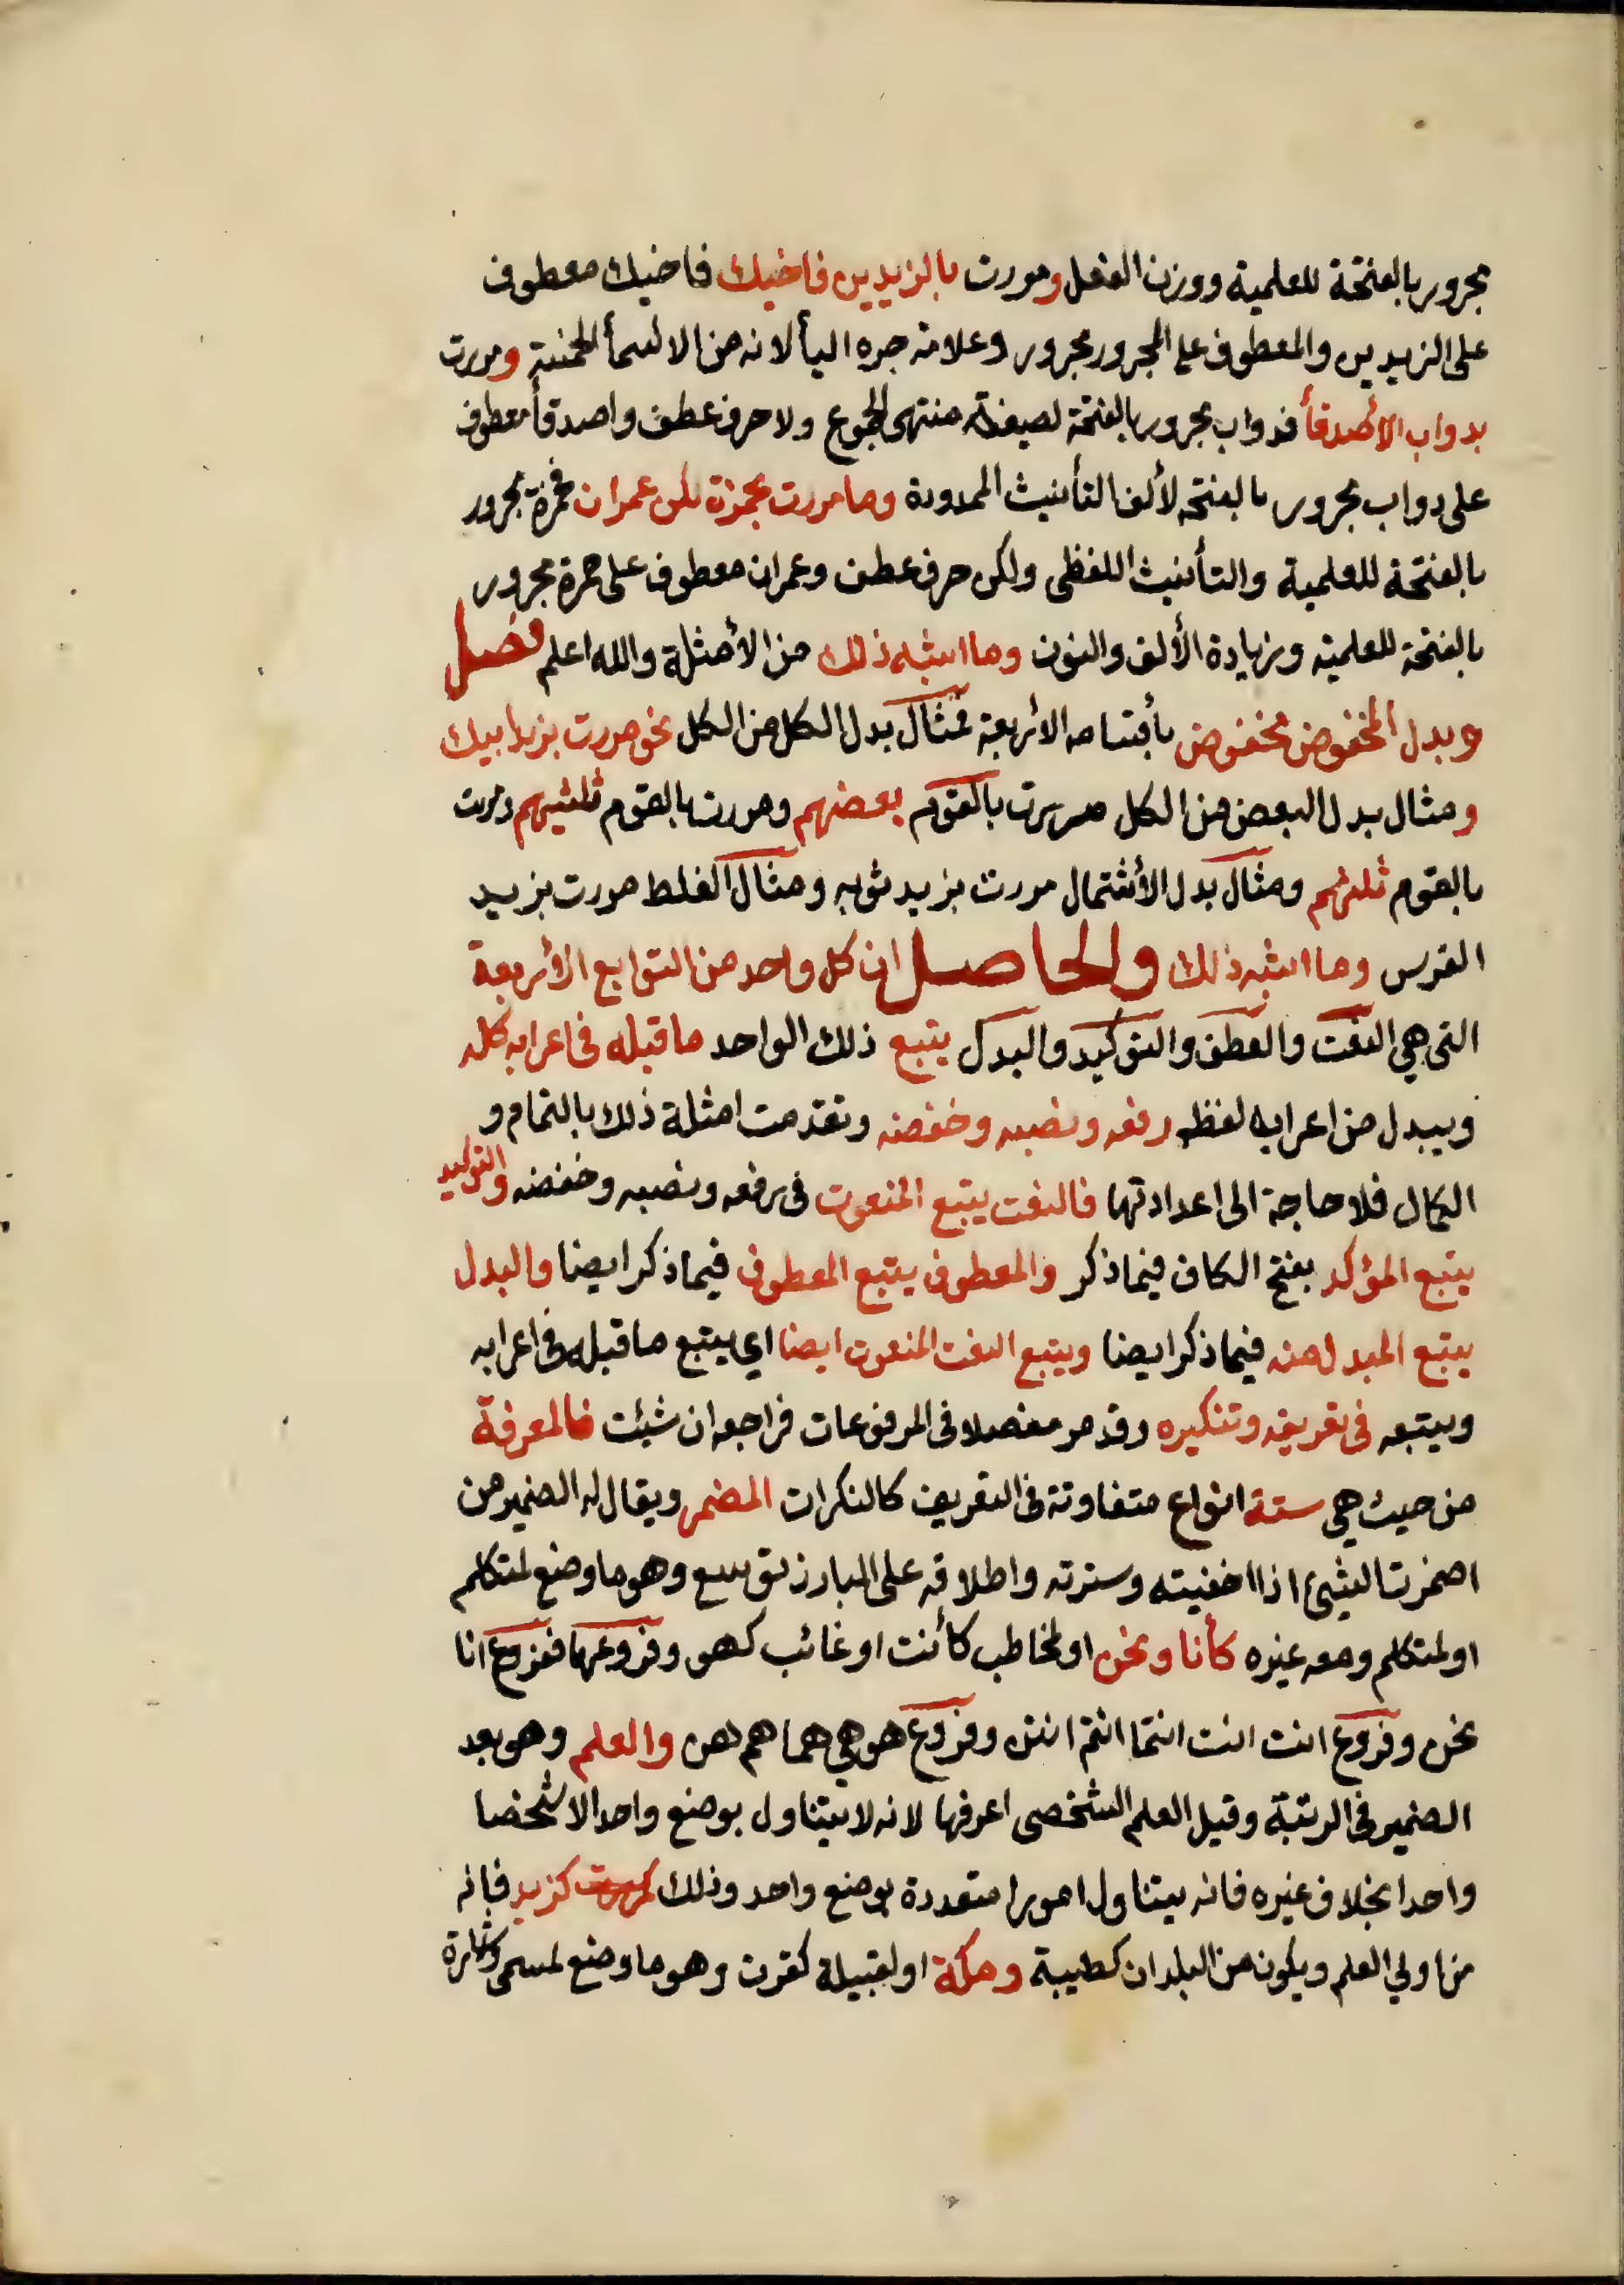 مجرور بالفتحة للعلمية ووزن الفعل ومررت بالزيدين فاخيك فاخيك معطوف
على الزيدين والمعطوف على المجرور مجرور وعلامة جره اليأ لانه من الاسمأ الخمسة ومررت
بدواب الأصدقأ فدواب مجرور بالفتحة لصيغة منتهى الجموع ولا حرف عطف واصدقأ معطوف
على دواب مجرور بالفتحة لألف التأنيث الممدودة وما مررت بحمزة لكن عمران فحمزة مجرور
بالفتحة للعلمية والتأنيث اللفظى ولكن حرف عطف وعمران معطوف على حمزة مجرور
بالفتحة للعلمية وزيادة الألف والنون وما اشبه ذلك من الأمثلة والله اعلم فصل
وبدل المخفوض مخفوض بأقسامه الاربعة فمثال بدل الكل من الكل نحو مررت بزيد ابيك
ومثال بدل البعض من الكل مررت بالقوم بعضهم ومررت بالقوم ثلثيهم ومررت
بالقوم ثلثهم ومثال بدل الأشتمال مررت بزيد ثوبه ومثال الغلط مررت بزيد
الفرس وما اشبه ذلك والحاصل ان كل واحد من التوابع الأربعة
التى هي النعت والعطف والتوكيد والبدل يتبع ذلك الواحد ما قبله فى اعرابه كله
ويبدل من اعرابه لفظه رفعه ونصبه وخفضه وتقدمت امثلة ذلك بالتمام و
الكمال فلا حاجة الى اعدادتها فالنعت يتبع المنعوت فى رفعه ونصبه وخفضه والتوكيد
يتبع المؤكد بفتح الكاف فيما ذكر والمعطوف يتبع المعطوف فيما ذكر ايضا والبدل
يتبع المبدل منه فيما ذكر ايضا ويتبع النعت المنعوت ايضا اي يتبع ما قبله فى اعرابه
ويتبعه فى تعريفه وتنكيره وقد مر مفصلا فى المرفوعات فراجعه ان شئت فالمعرفة
من حيث هي ستة انواع متفاوتة فى التعريف كالنكرات المضمر ويقال له الضمير من
اضمرت الشئ اذا اخفيته وسترته واطلاقه على البارز توسع وهو ما وضع لمتكلم
او لمتكلم ومعه غيره كأنا ونحن او لمخاطب كأنت او غائب كهو وفروعها ففروع انا
نحن وفروع انت انت انتما انتم انتن وفروع هو هي هما هم هن والعلم وهو بعد
الضمير فى الرتبة وقيل العلم الشخصى اعرفها لانه لا يتناول بوضع واحد الا شخصا
واحدا بخلاف غيره فانه يتناول امورا متعددة بوضع واحد وذلك كزيد فانه
من اولي العلم ويكون من البلدان كطيبة ومكة او لقبيلة كقرن وهو ما وضع لمسمى